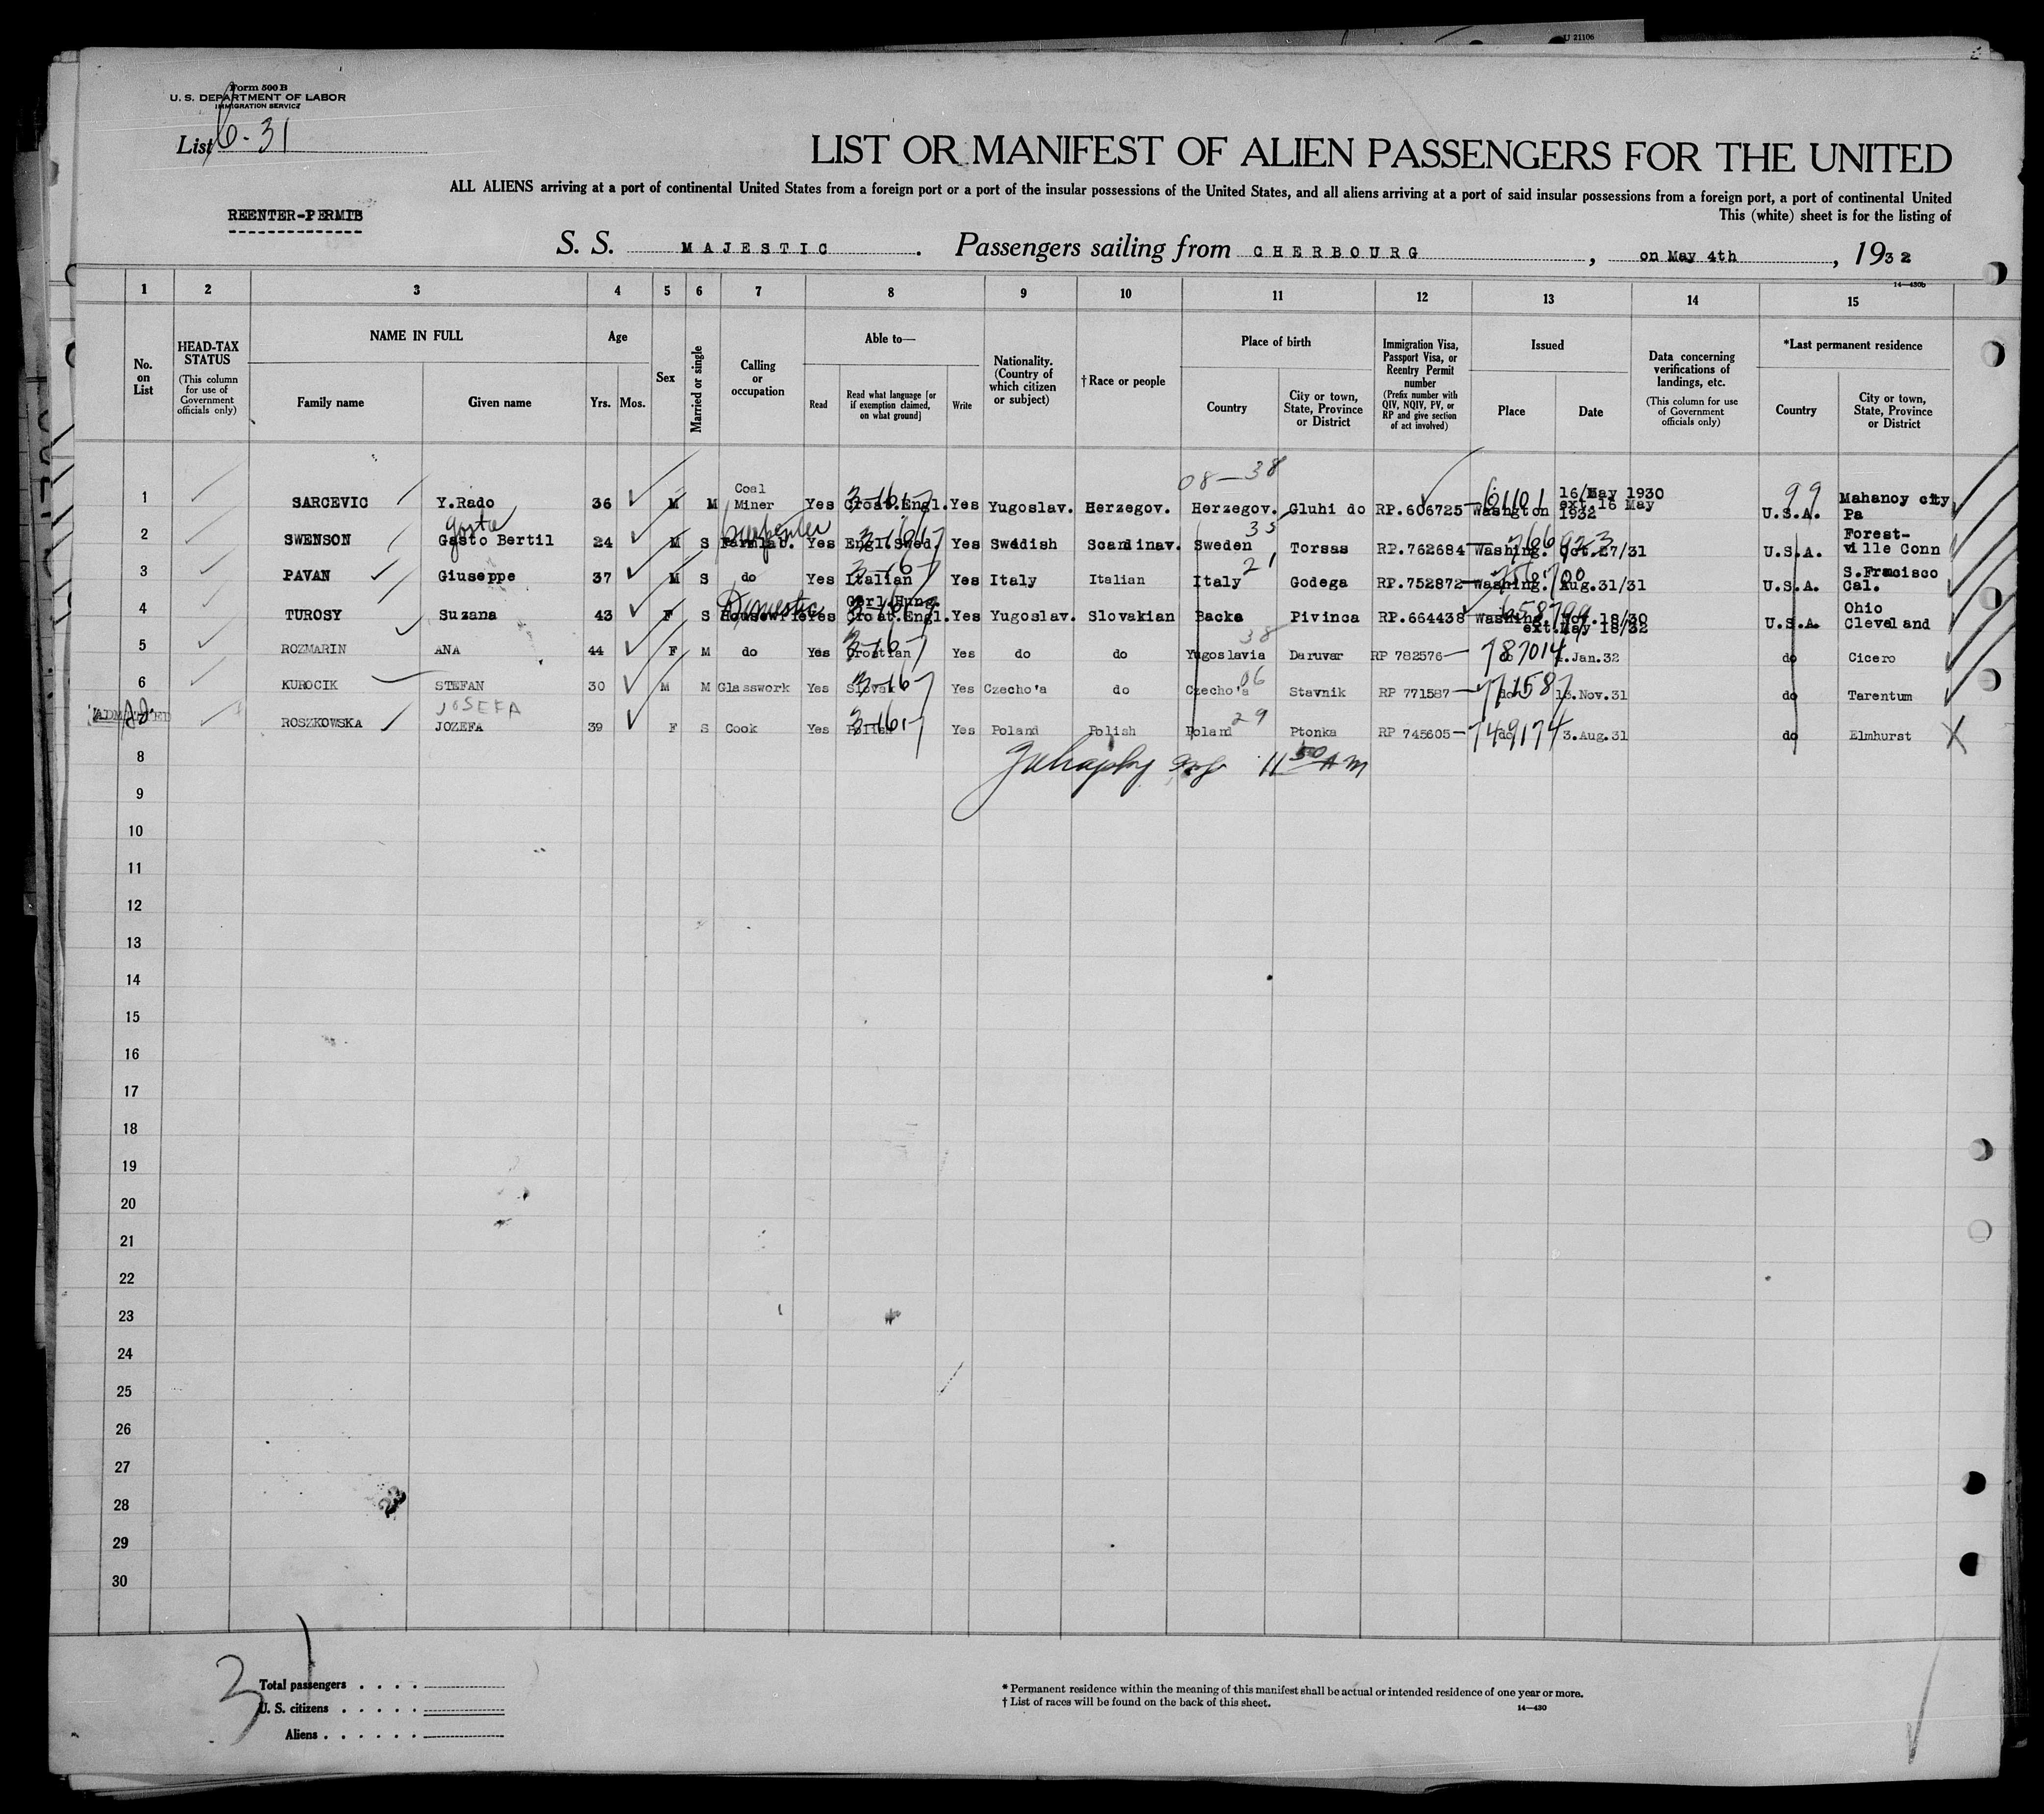 U 21106
Form 500 B
U. S. DEPARTMENT OF LABOR
IMMIGRATION SERVICE
List 6-31
LIST OR MANIFEST OF ALIEN PASSENGERS FOR THE UNITED
ALL ALIENS arriving at a port of continental United States from a foreign port or a port of the insular possessions of the United States, and all aliens arriving at a port of said insular possessions from a foreign port, a port of continental United
This (white) sheet is for the listing of
REENTER-PERMITS
S. S. MAJESTIC. Passengers sailing from CHERBOURG, on May 4th, 1932
14—430b
1 2 3 4 5 6 7 8 9 10 11 12 13 14 15
No. on List
HEAD-TAX STATUS
(This column for use of Government officials only)
NAME IN FULL
Family name Given name
Age
Yrs. Mos.
Sex
Married or single
Calling or occupation
Able to—
Read
Read what language [or if exemption claimed, on what ground]
Write
Nationality. (Country of which citizen or subject)
† Race or people
Place of birth
Country
City or town, State, Province or District
Immigration Visa, Passport Visa, or Reentry Permit number
(Prefix number with QIV, NQIV, PV, or RP and give section of act involved)
Issued
Place Date
Data concerning verifications of landings, etc.
(This column for use of Government officials only)
*Last permanent residence
Country
City or town, State, Province or District
08-38
1 SARCEVIC Y.Rado 36 M M Coal Miner Yes Croat.Engl. 3-16-7 Yes Yugoslav. Herzegov. Herzegov. Gluhi do RP.606725 Washgton 61101 16/May 1930 ext.16 May 1932 99 U.S.A. Mahanoy city Pa
2 SWENSON Gasto Bertil Gosta 24 M S Farmlab. Carpenter Yes Engl.Swed. Yes Swedish Scandinav. Sweden 35 Torsas RP.762684 Washing. Oct.27/31 U.S.A. Forest-ville Conn
3 PAVAN Giuseppe 37 M S do Yes Italian 3-16-7 Yes Italy Italian Italy 21 Godega RP.752872 Washing. Aug.31/31 U.S.A. S.Francisco Cal.
4 TUROSY Suzana 43 F S Housewife Domestic Yes Hung. Croat.Engl. Yes Yugoslav. Slovakian Backa Pivinca RP.664438 Washing. Nov.18/30 ext.May 18/32 U.S.A. Ohio Cleveland
5 ROZMARIN ANA 44 F M do Yes Croatian 3-16-7 Yes do do Yugoslavia 38 Daruvar RP 782576 787014 Jan.32 do Cicero
6 KUROCIK STEFAN 30 M M Glasswork Yes Slovak 3-16-7 Yes Czecho'a do Czecho'a 06 Stavnik RP 771587 do 771587 Nov.31 do Tarentum
JOSEFA
ROSZKOWSKA JOZEFA 39 F S Cook Yes Polish 3-16-7 Yes Poland Polish Poland 29 Ptonka RP 745605 do 749174 3.Aug.31 do Elmhurst
8 11 50 AM
9
10
11
12
13
14
15
16
17
18
19
20
21
22
23
24
25
26
27
28
29
30
3
Total passengers
U. S. citizens
Aliens
* Permanent residence within the meaning of this manifest shall be actual or intended residence of one year or more.
† List of races will be found on the back of this sheet.
14—430